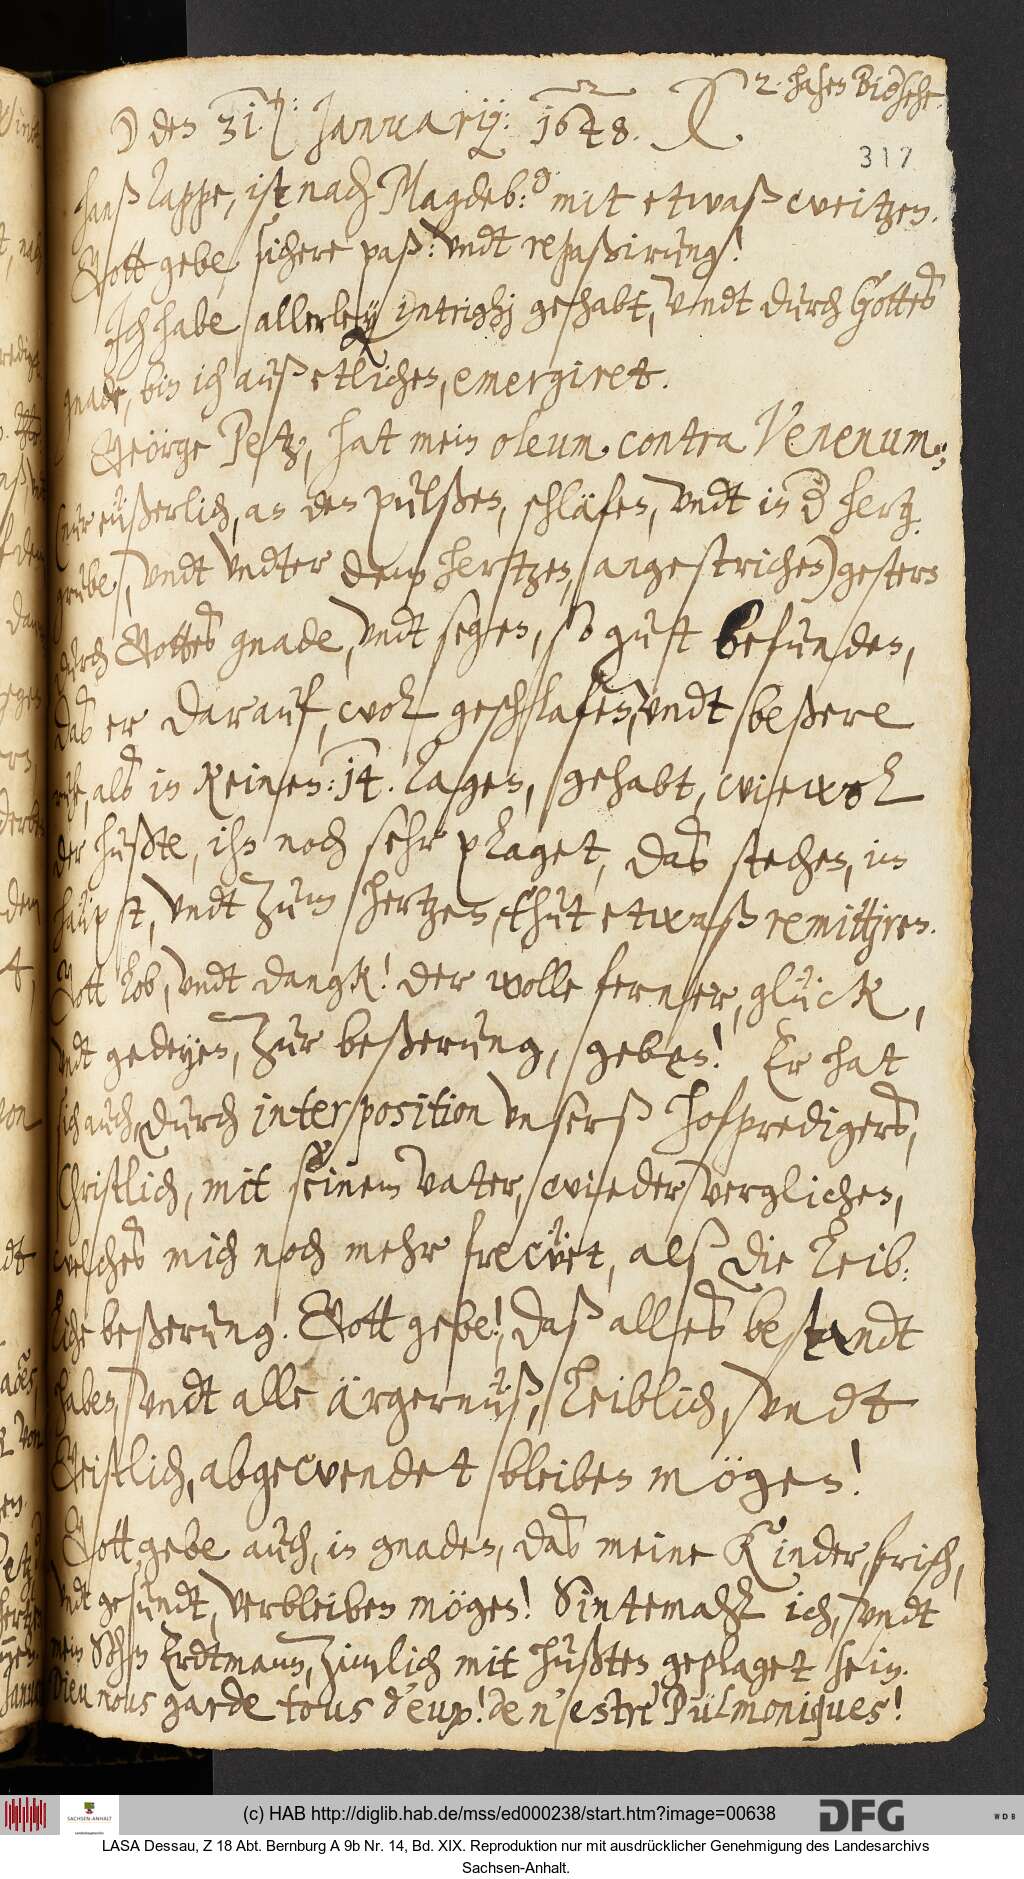 2. hasen Bigsche.
☽ den 31.t: Januarij: 1648.
317
Hanß Kappe, ist nach Magdeb: mit etwaß weitzen.
Gott gebe, sichere paß: vndt repassirung!
Ich habe allerley intrighj gehabt, vndt durch Gottes
gnade, bin ich auß etlichen, emergiret.
Geörge Petz, hat mein oleum contra Venenum,
(nur eüßerlich, an den pulßen, schläfen, vndt in der hertz-
grube, vndt vndter dem hertzen, angestrichen) gestern
durch Gottes gnade, vndt segen, so gut befunden,
das er darauf, wol geschlafen, vndt beßere
ruhe, als in keinen: 14. Tagen, gehabt, wiewol
der hußte, ihn noch sehr plaget, das stechen, im
haüpt, vndt zum hertzen, thut etwaß remittiren.
Gott lob, vndt dangk! der wolle ferner, glück,
vndt gedeyen, zur beßerung, geben! Er hat
sich auch, durch interposition vnserß hofpredigers,
Christlich, mit seinem vater, wieder verglichen,
welches mich noch mehr frewet, alß die Leib:
liche beßerung. Gott gebe!, daß alles bestandt
haben, vndt alle ärgernüß, Leiblich, vndt
Geistlich, abgewendet bleiben mögen!
Gott gebe auch, in gnaden, das meine Kinder, frisch,
vndt gesundt, verbleiben mögen! Sintemahl ich, vndt
mein Sohn Erdtmann, zimlich mit hußten geplaget sein.
Dieu nous garde tous d'eux! de n'estre Pulmoniques!
(c) HAB http://diglib.hab.de/mss/ed000238/start.htm?image=00638
SACHSEN-ANHALT
DFG
WDB
LASA Dessau, Z 18 Abt. Bernburg A 9b Nr. 14, Bd. XIX. Reproduktion nur mit ausdrücklicher Genehmigung des Landesarchivs
Sachsen-Anhalt.